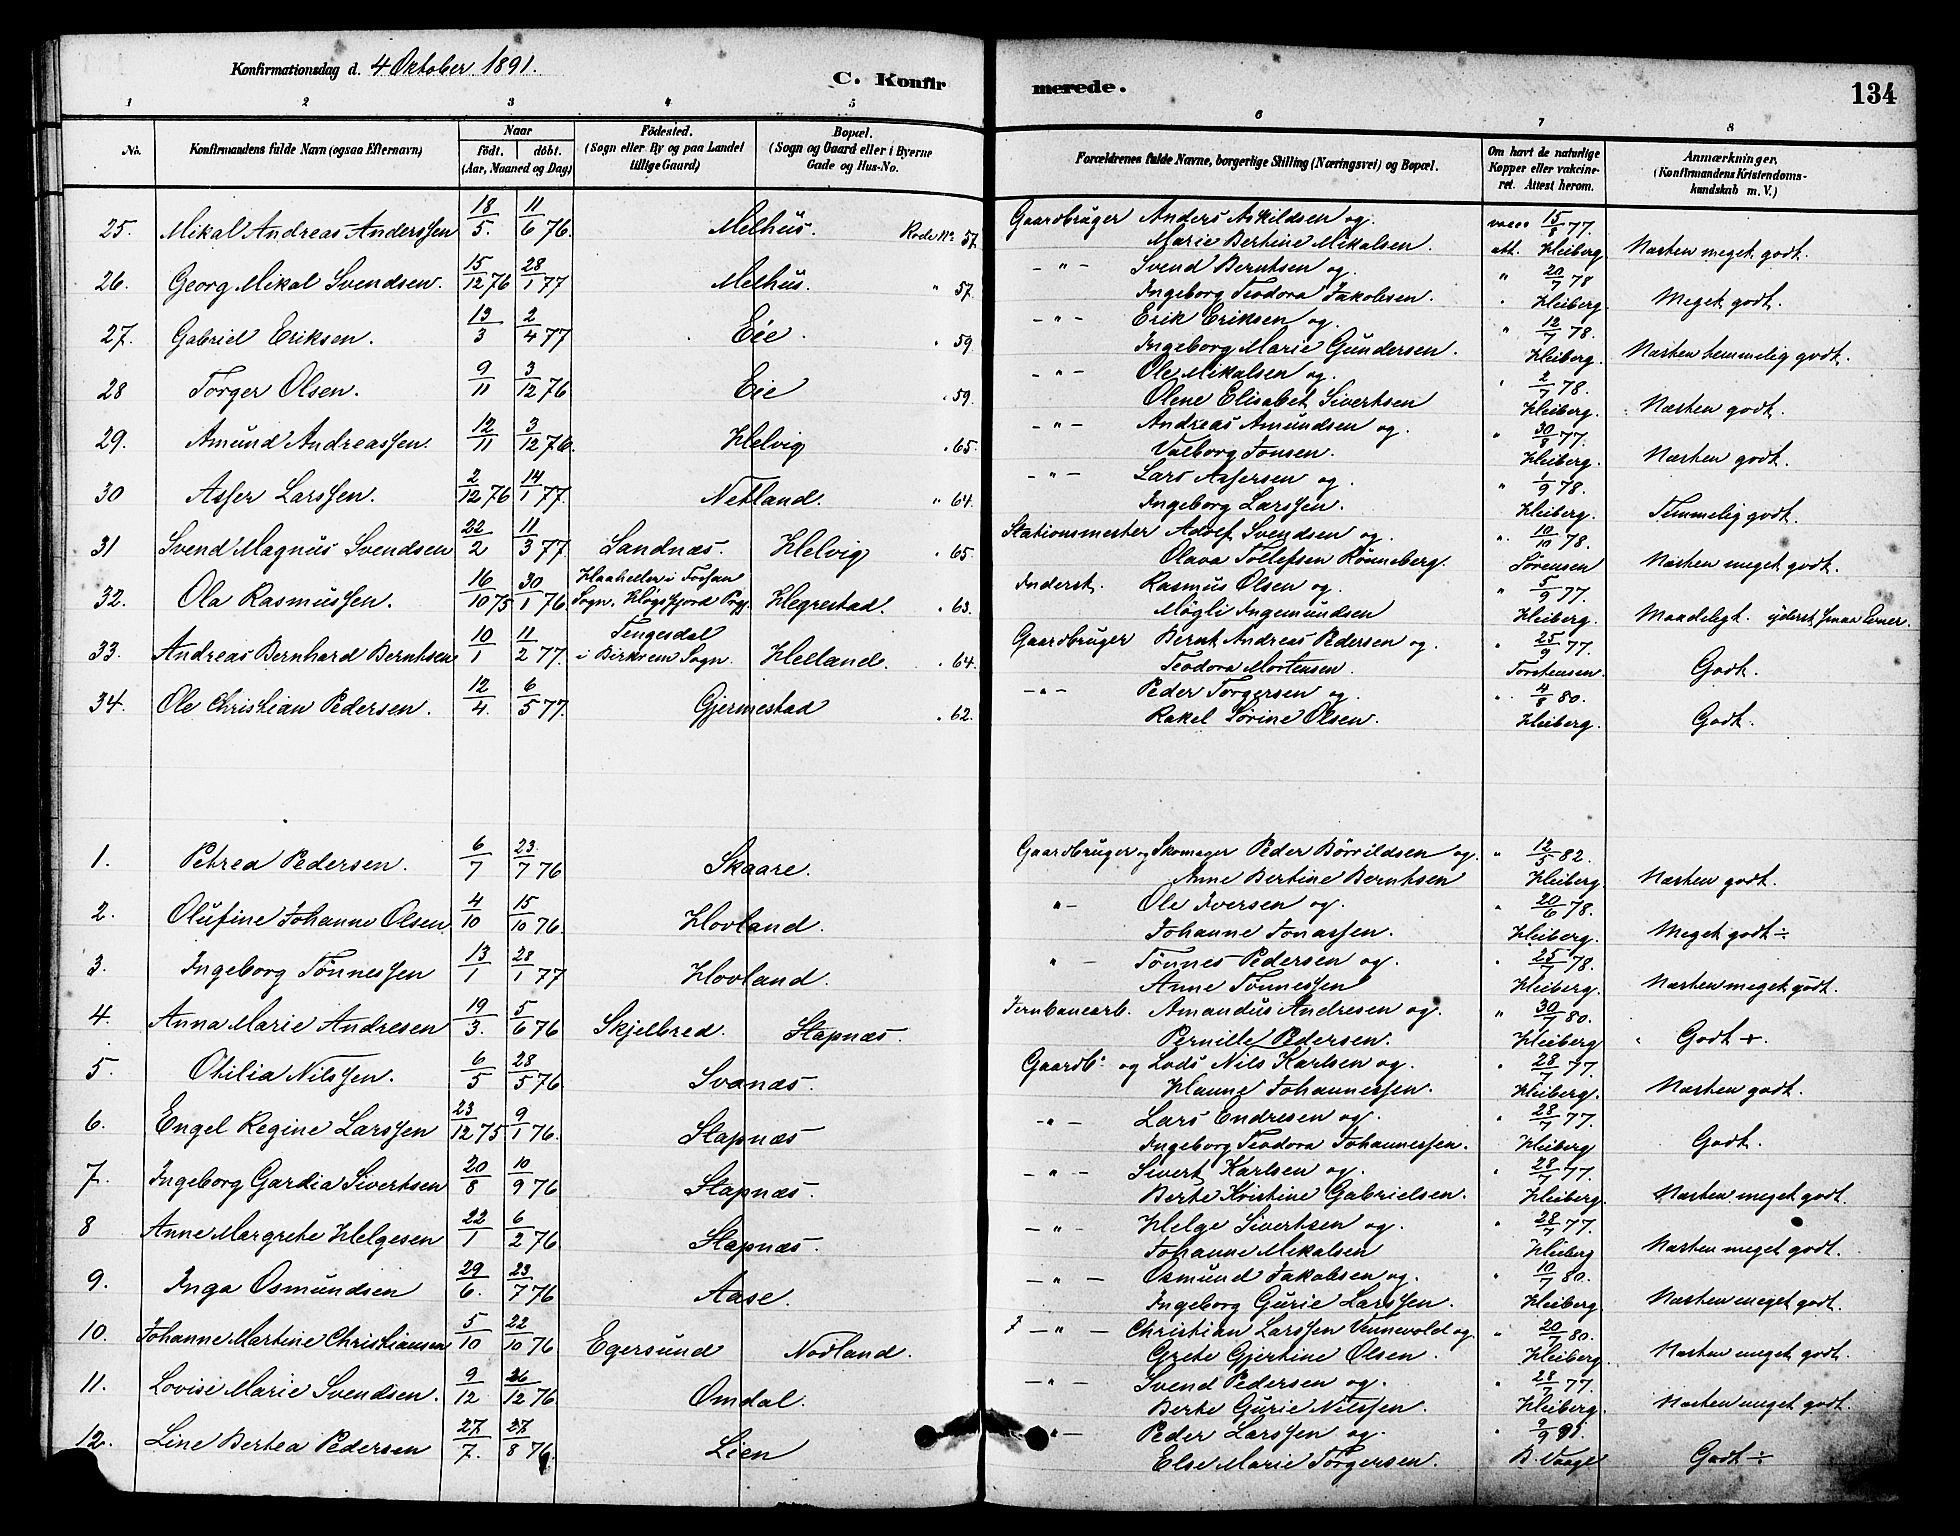 Konfirmationsdag d. 4 Oktober 1891.
C. Konfirmerede.
134
1 2 3 4 5 6 7 8
No.
Konfirmandens fulde Navn (ogsaa Efternavn)
Naar
födt. döbt.
(Aar, Maaned og Dag)
Födested.
(Sogn eller By og paa Landet
tillige Gaard)
Bopæl.
(Sogn og Gaard eller i Byerne
Gade og Hus-No.
Forældrenes fulde Navne, borgerlige Stilling (Næringsvei) og Bopæl.
Om havt de naturlige
Kopper eller vakcine-
ret. Attest herom.
Anmærkninger,
(Konfirmandens Kristendoms-
kundskab m. V.)
25. Mikal Andreas Anderssen 18/5. 11/6 76. Melhus. Rode No 57. Gaardbruger Anders Askildsen og vacc 15/8 77.
Marie Bertine Mikalsen. att. Heiberg. Næsten meget godt.
26. Georg Mikal Svendsen. 15/12 76 28/1 77 Melhus. " 57. — " — Svend Berntsen og. " 20/7 78
Ingeborg Teodora Jakobsen. " Heiberg. Meget godt.
27. Gabriel Eriksen. 13/3 2/4 77 Eie. " 59. — " — Erik Eriksen og. " 12/7 78.
Ingeborg Marie Gundersen. Heiberg. Næsten temmelig godt.
28 Torger Olsen. 9/11 3/12 76 Eie " 59. — " — Ole Mikalsen og. " 2/7 78.
Olene Elisabet Sivertsen Heiberg. Næsten godt.
29. Amund Andreassen. 12/11 3/12 76. Helvig " 65. — " — Andreas Amundsen og. " 30/8 77.
Valborg Tonsen. Heiberg. Næsten godt.
30 Asser Larssen. 2/12 76 14/1 77. Netland. " 64. — " — Lars Assersen og. " 1/9 78.
Ingeborg Larssen. Heiberg. Temmelig godt.
31 Svend Magnus Svendsen 22/2 11/3 77 Sandnæs. Helvig " 65. Stationsmester Adolf Svendsen og. " 10/10 78.
Olava Tollefsen Rönneberg. Sørensen Næsten meget godt.
32. Ola Rasmussen. 16/10 75 30/1 76 i Fossan Sogn, Högsfjord Prgj. Hegrestad. " 63. Inderst. Rasmus Olsen og. " 5/9 77.
Magli Ingemundsen Heiberg. Maadeligt. yderst smaa Evner.
33. Andreas Bernhard Berntsen 10/1 11/2 77. Tengesdal i Birkrem Sogn. Helland. " 64. Gaardbruger Bernt Andreas Pedersen og. " 25/9 77.
Teodora Mortensen. Torstensen. Godt.
34. Ole Christian Pedersen. 12/4. 6/5 77. Gjermestad " 62. — " — Peder Torgersen og. " 4/8 80.
Rakel Sørine Olsen. Heiberg. Godt.
1. Petrea Pedersen. 6/7 23/7 76 Skaare. Gaardbruger og Skomager Peder Börrildsen og. " 12/5 82.
Anne Bertine Berntsen Heiberg. Næsten godt.
2. Olufine Johanne Olsen 4/10 15/10 76. Hovland. " — Ole Iversen og. " 20/6 78.
Johanne Jonassen. Heiberg. Meget godt ÷
3. Ingeborg Tønnessen 13/1 28/1 77 Hovland. " — Tønnes Pedersen og. " 25/7 78.
Anne Tønnessen Heiberg. Næsten meget godt.
4. Anna Marie Andresen 19/3. 5/6 76 Skjelbred. Stapnæs. Jernbanearb. Amandus Andresen og. " 30/7 80.
Pernille Pedersen. Heiberg Godt +.
5. Otilia Nilssen. 6/5 28/5 76 Svanæs. Gaardb. og Lods Nils Karlsen og. " 28/7 77.
Hanne Johannessen. Heiberg. Næsten godt.
6. Engel Regine Larssen 23/12 75 9/1 76. Stapnæs — " — Lars Endresen og. " 28/7 77.
Ingeborg Teodora Johannessen. Heiberg Godt.
7. Ingeborg Gardia Sivertsen 20/8 10/9 76 Stapnæs. — " — Sivert Karlsen og. " 28/7 77.
Berte Kristine Gabrielsen. Heiberg. Næsten meget godt.
8 Anne Margrete Helgesen 22/1 6/2 76 Stapnæs. — " — Helge Sivertsen og. " 28/7 77.
Johanne Mikalsen Heiberg Næsten meget godt.
9. Inga Osmundsen 29/6. 23/7 76 Aase. — " — Osmund Jakobsen og. " 10/7 80.
Ingeborg Gurie Larssen. Heiberg. Næsten meget godt.
10. Johanne Martine Christiansen 5/10 22/10 76 Egersund Nodland. — " — Christian Larssen Vennevold og. " 20/7 80.
Grete Gjertine Olsen. Heiberg. Næsten meget godt.
11. Lovise Marie Svendsen. 9/12 26/12 76 Omdal. — " — Svend Pedersen og. " 28/7 77.
Berte Gurie Nilssen. Heiberg. Næsten meget godt.
12. Line Bertea Pedersen 27/7. 27/8 76 Lien " — Peder Larssen og.
Else Marie Torgersen. B. Vaage Godt ÷